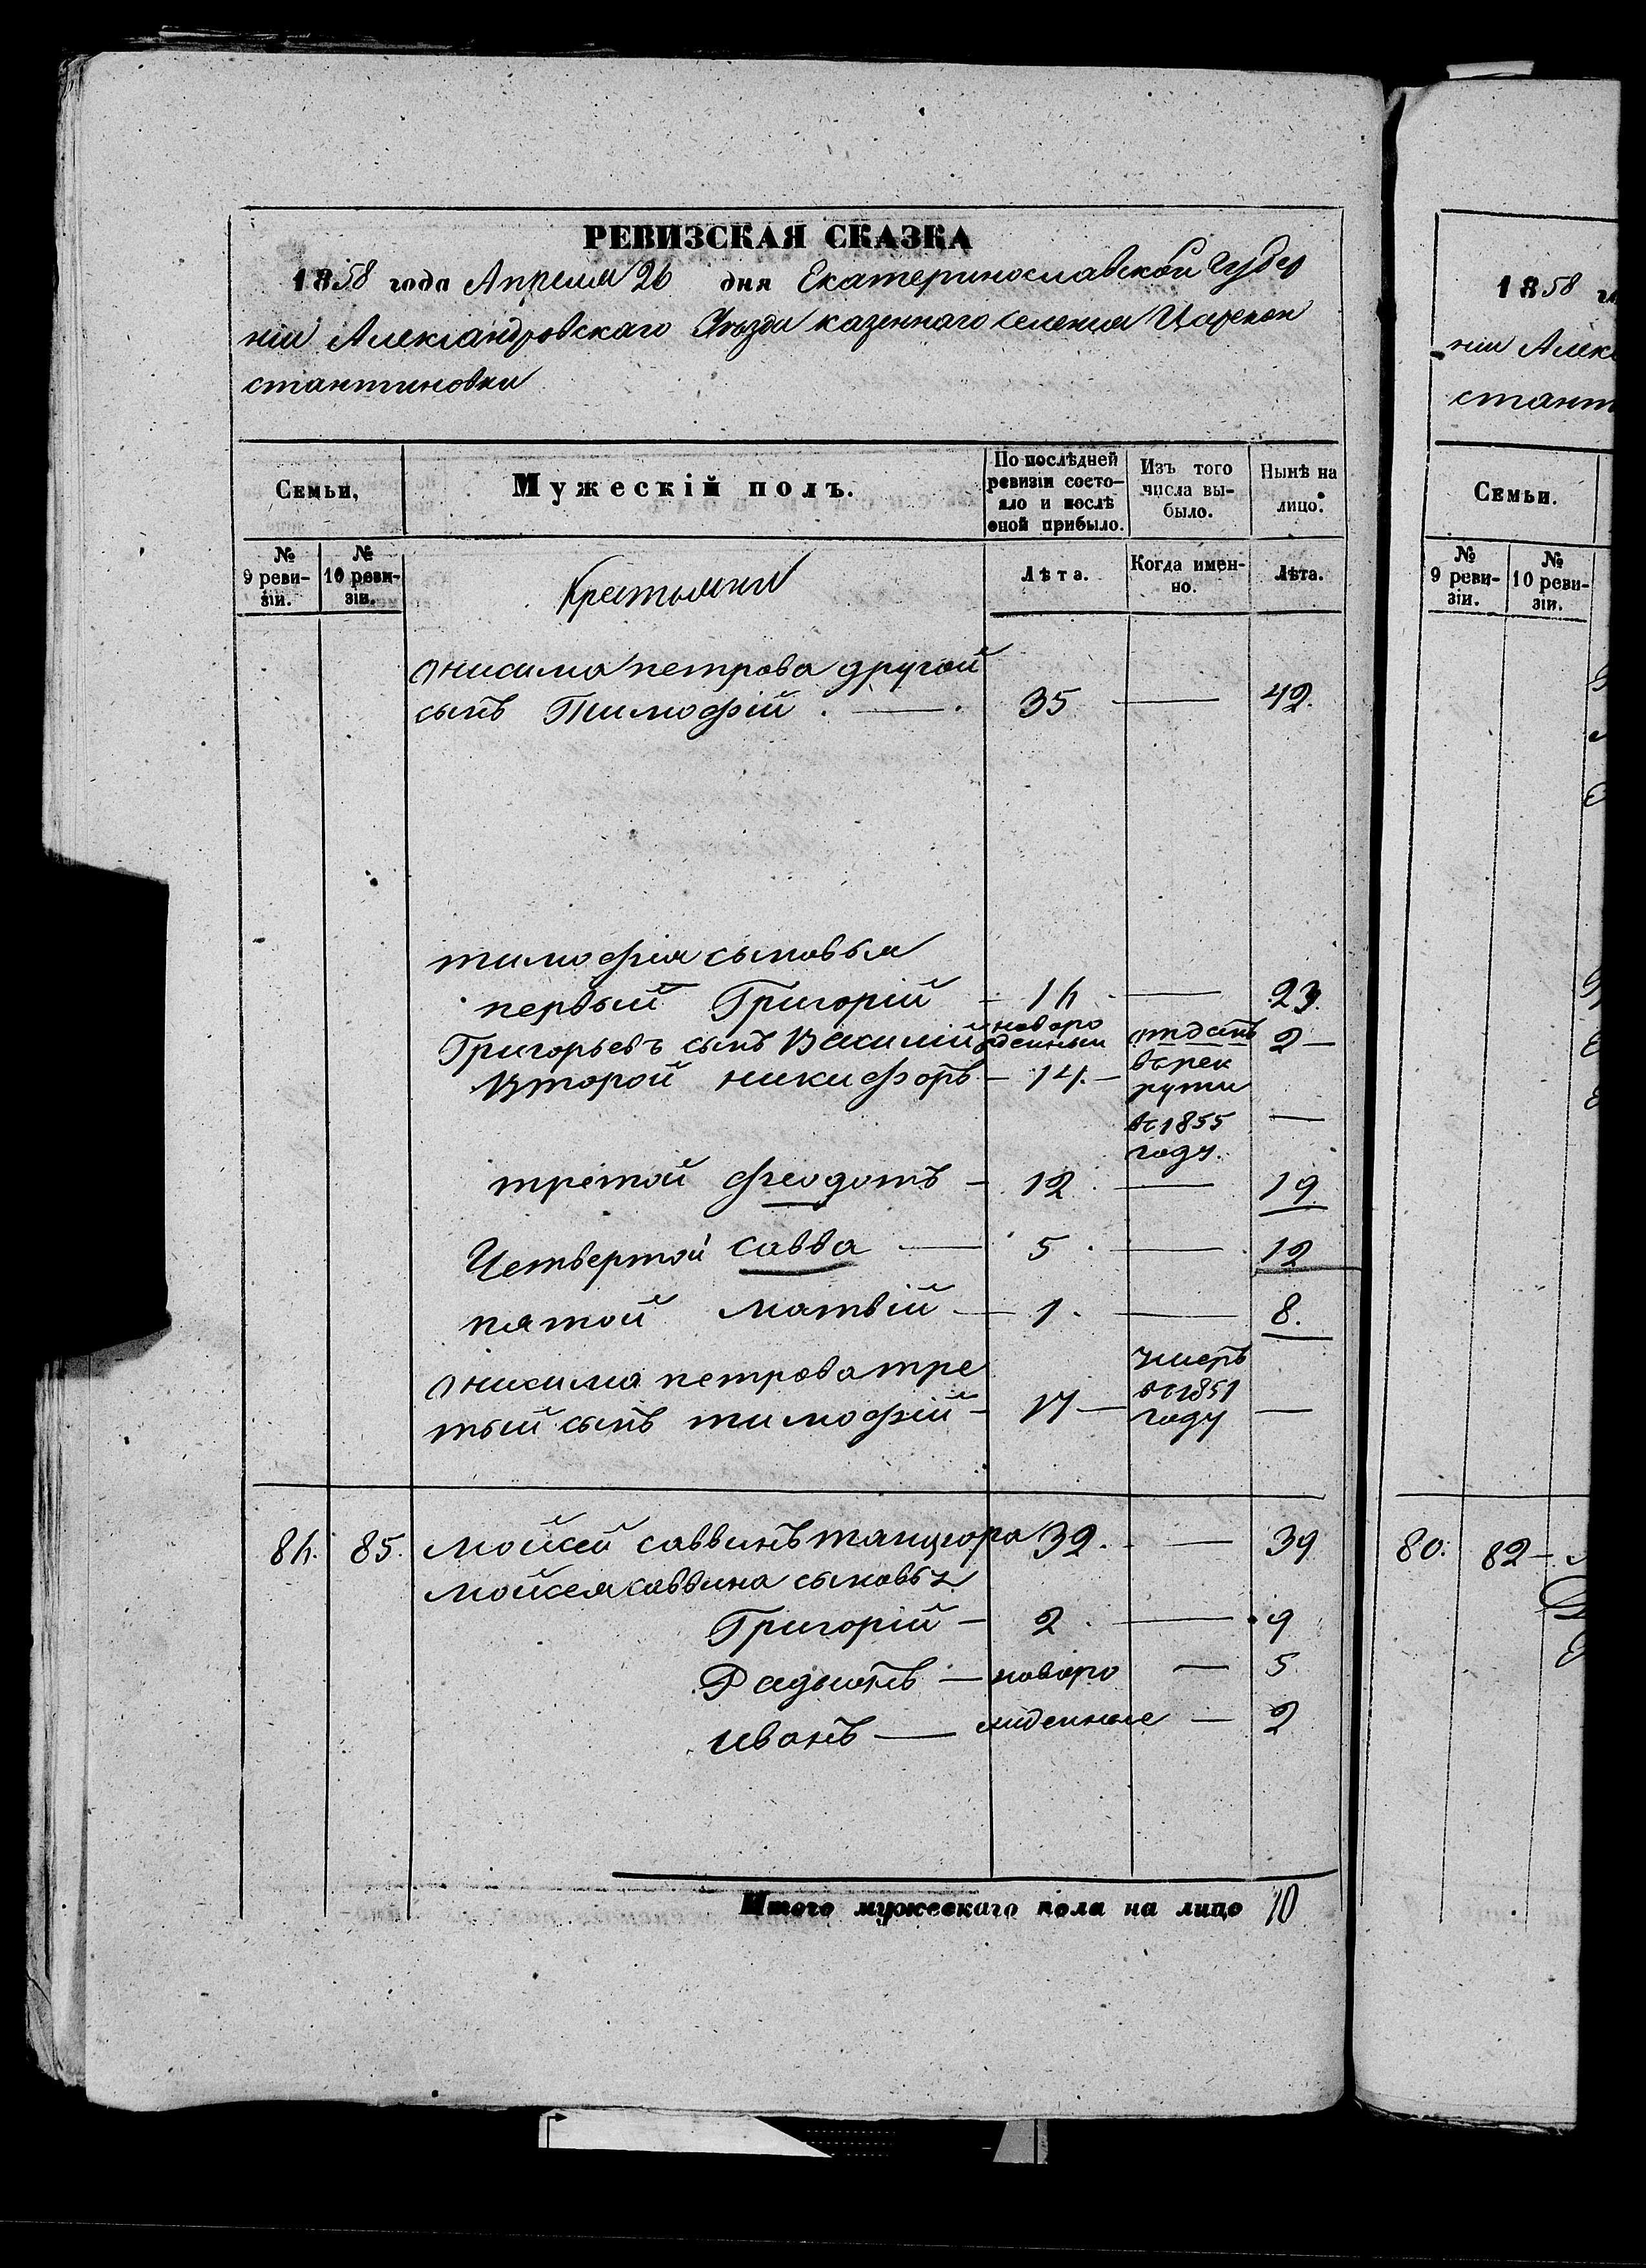 РЕВИЗСКАЯ СКАЗКА
1858 года Апреля 26 дня Екатеринославской Губер
ніи Александровскаго Уѣзда казеннаго селенія Царекон
стантиновки
Семьи,
Мужескій полъ.
По послѣдней ревизіи состо-яло и послѣ оной прибыло.
Изъ того числа вы-было.
Нынѣ на лицо.
№ 9 реви-зіи.
№ 10 реви-зіи.
Крестьяни
Лѣта.
Когда имен-но.
Лѣта.
Онисима петрова другой
сынъ Тимофій . — . 35 — 42.
тимофія сыновья
первый Григорій - 16 - — 23.
Григорьевъ сынъ Василій новоро жденный 2 —
Второй никифоръ — 14. — отданъ
въ рек
руты
въ 1855 —
году.
третой феодотъ - 12 . — 19
Четвертой савва — 5 . — 12
пятой матвій — 1. — 8.
Онисима петрова тре
тый сынъ тимофій - 17 — умеръ
въ 1851 —
году
86. 85. Мойсей саввинъ танцюра 32. — 39
Мойсея саввина сыновья
Григорій — 2 . — 9
Радыонъ — новоро — 5
иванъ — жденные — 2
Итого мужескаго пола на лицо 10
1858 го
ніи Алек
стант
Семьи.
№ 9 реви-зіи.
№ 10 реви-зіи.
80. 82 —